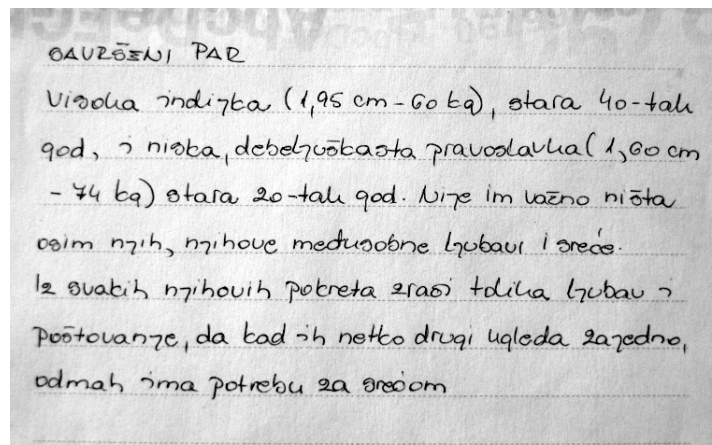 SAVRŠENI PAR
Visoka indijka (1,95 cm - 60 kg), stara 40-tak
god, i niska, debeljuškasta pravoslavka (1,60 cm
- 74 kg) stara 20-tak god. Nije im važno ništa
osim njih, njihove međusobne ljubavi i sreće.
Iz svakih njihovih pokreta zrači tolika ljubav i
poštovanje, da kad ih netko drugi ugleda zajedno,
odmah ima potrebu za srećom